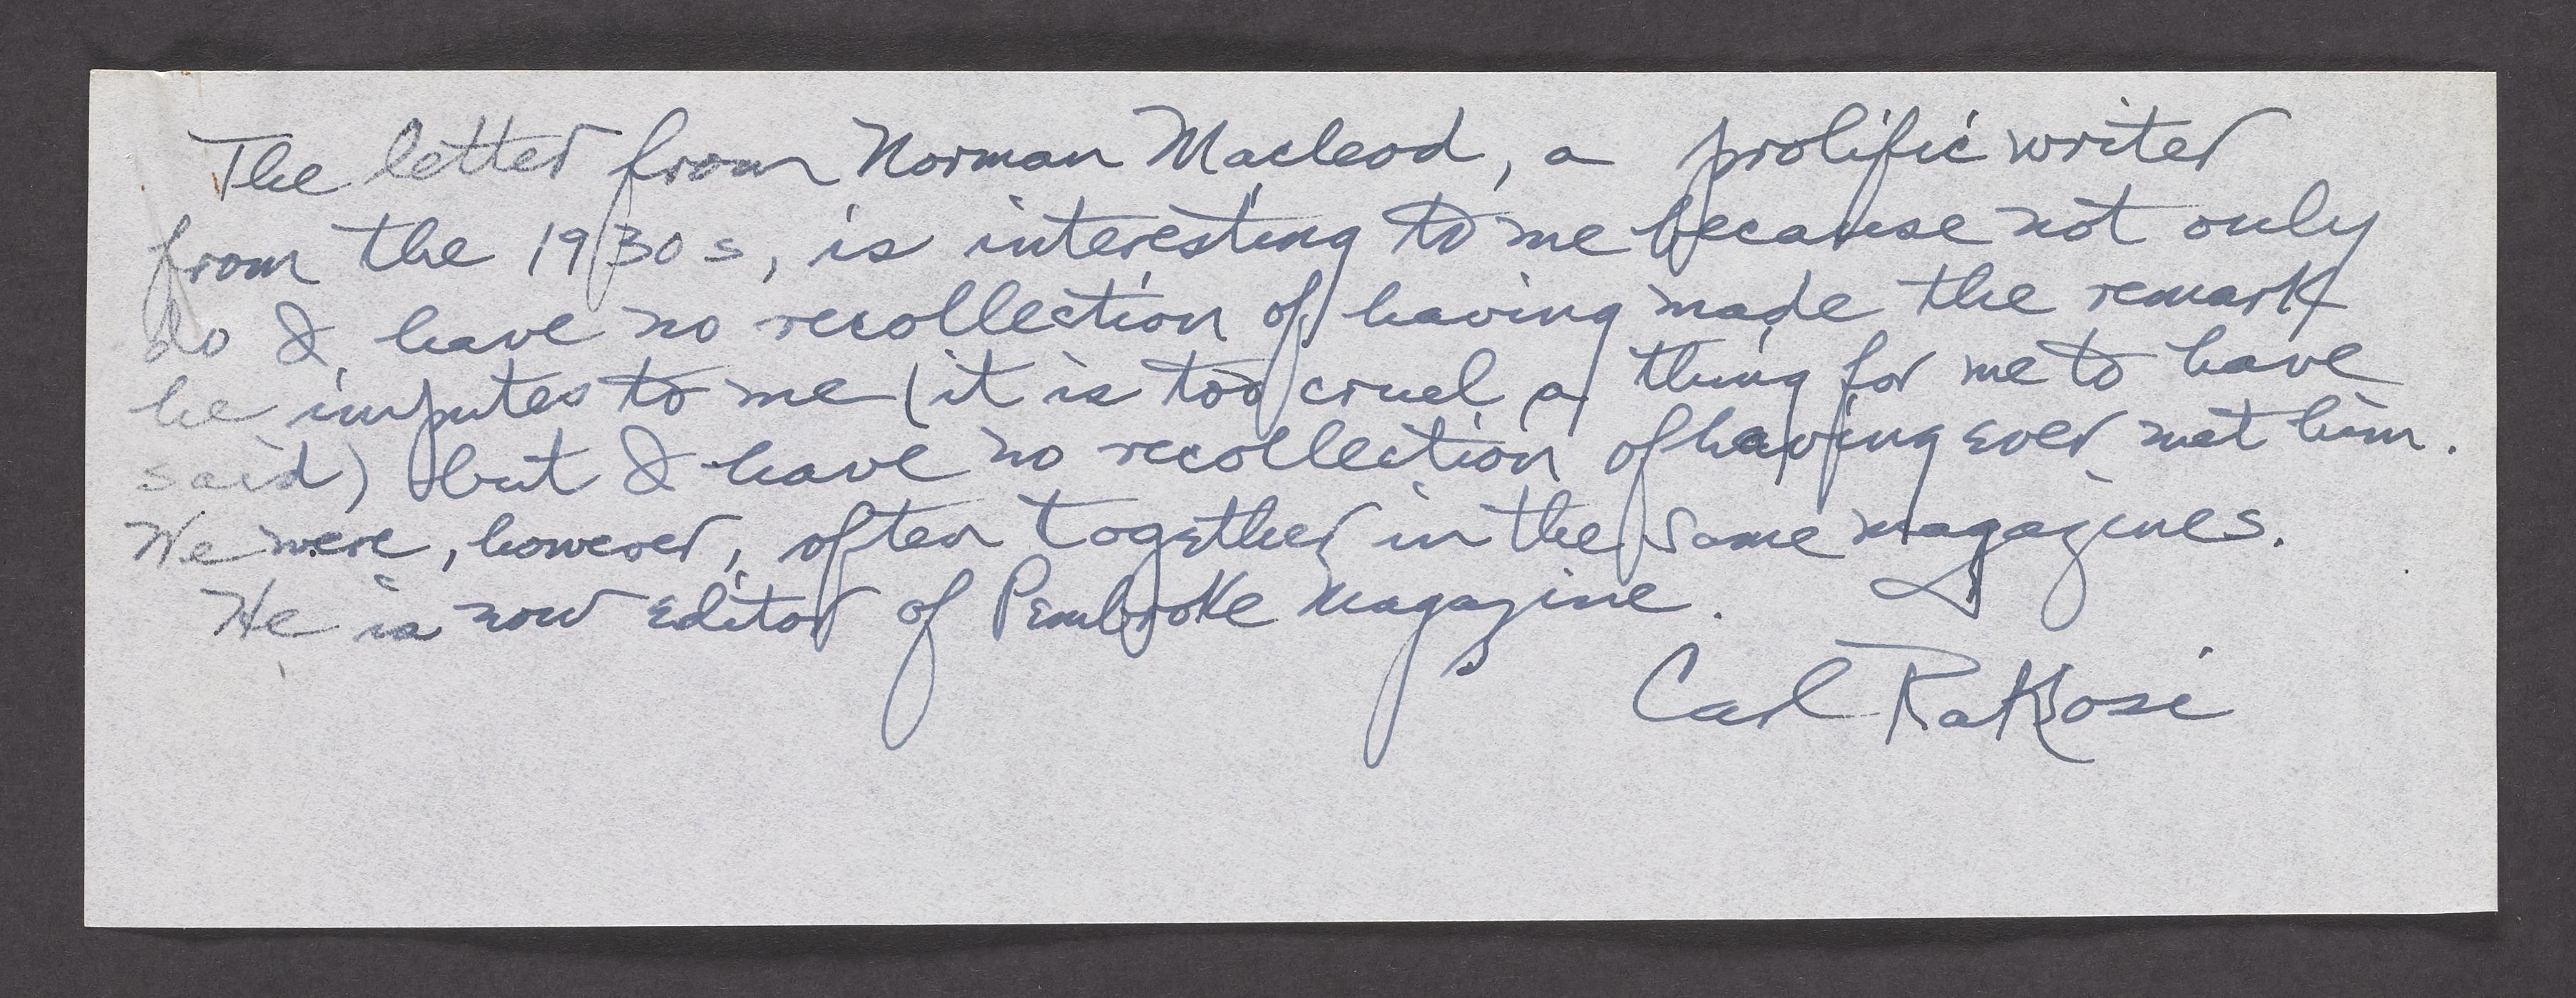 The letter from Norman Macleod, a prolific writer
from the 1930s, is interesting to me because not only
do I have no recollection of having made the remark
he imputes to me (it is too cruel a thing for me to have
said) but I have no recollection of having ever met him.
We were, however, often together in the same magazines.
He is now editor of Pembroke Magazine.
Carl Rakosi